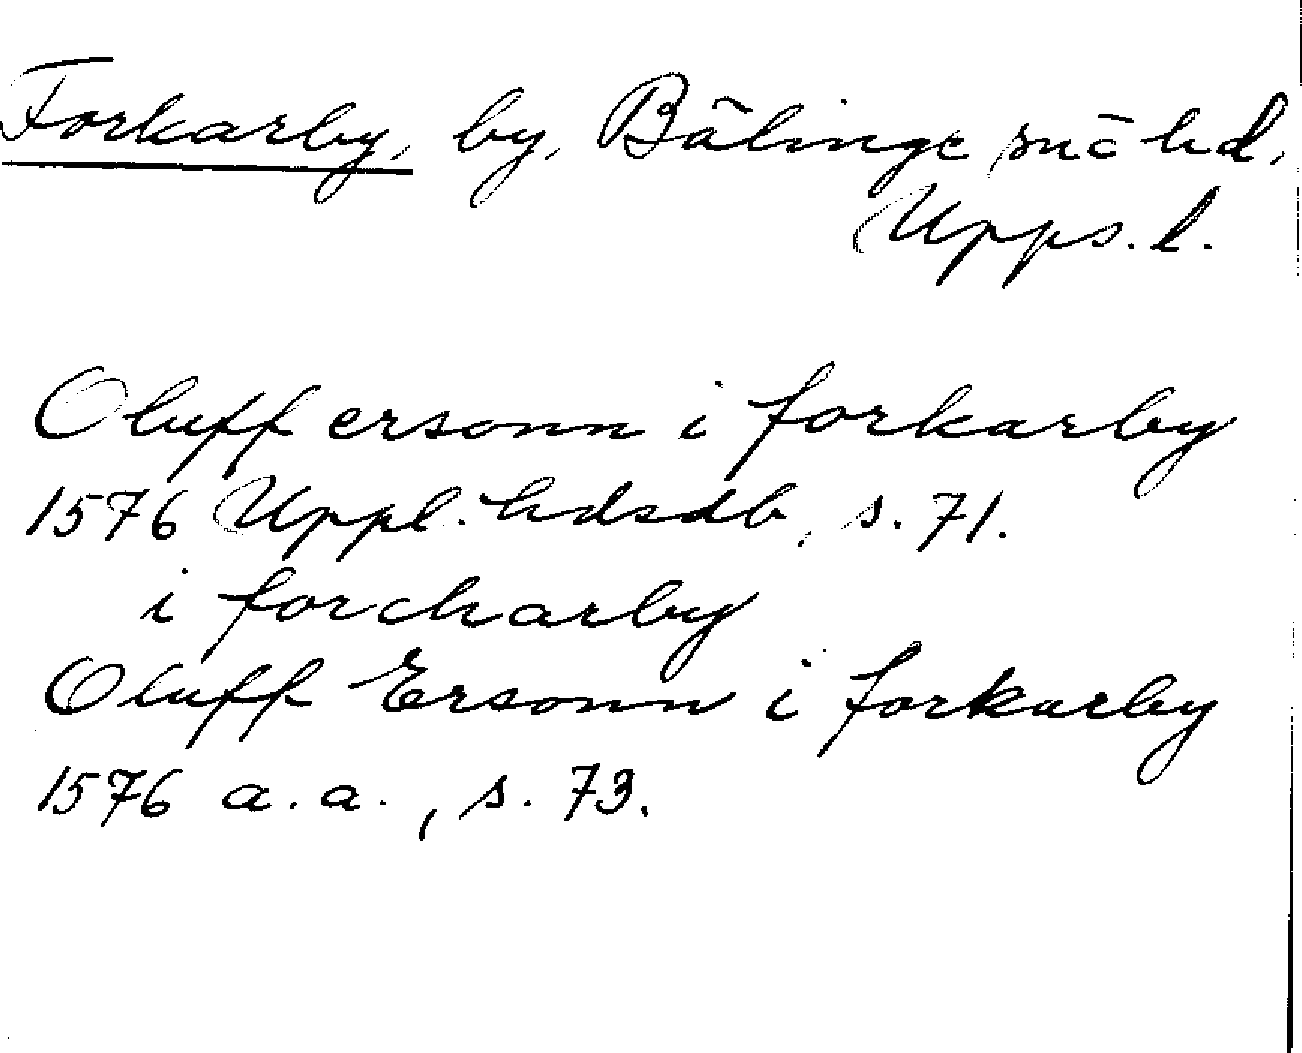 Forkarby, by, Bälinge sn ō hd.
Upps. l.
Oluff ersonn i forkarby
1576 Uppl. hdsdb, s. 71.
i forcharby
Oluff Ersonn i forkarby
1576 a. a., s. 73.